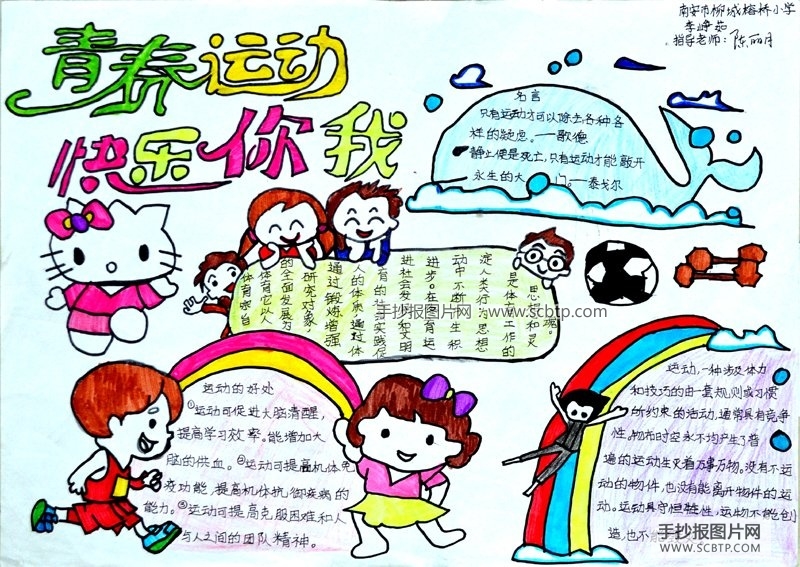 南安市柳城榕桥小学
李峥茹
指导老师：陈丽月
青春运动
快乐你我
名言
只有运动才可以除去各种各
样的疑虑。——歌德
静止便是死亡，只有运动才能敲开
永生的大门。——泰戈尔
体育宗旨
体育它以人
的全面发展为
研究对象，
通过锻炼增强
人的体质通过体
育的社会实践促
进社会发展和文明
进步。在体育运
动中不断生积
淀人类行为思想
是体育工作的
思想和灵魂。
手抄报图片网 www.scbtp.com
运动的好处
①运动可促进大脑清醒，
提高学习效率。能增加大
脑的供血。②运动可提高机体免
疫功能，提高机体抗御疾病的
能力。③运动可提高克服困难和人
与人之间的团队精神。
运动，一种涉及体力
和技巧的由一套规则或习惯
所约束的活动，通常具有竞争
性。物布时空永不均产生了普
遍的运动生灭着万事万物。没有不运
动的物件，也没有能离开物件的运
动。运动具守恒性，运物不能创
造，也不
手抄报图片网
WWW.SCBTP.COM